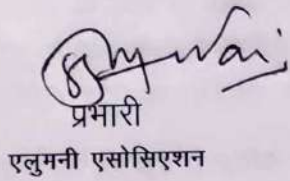 प्रभारी
एलुमनी एसोसिएशन